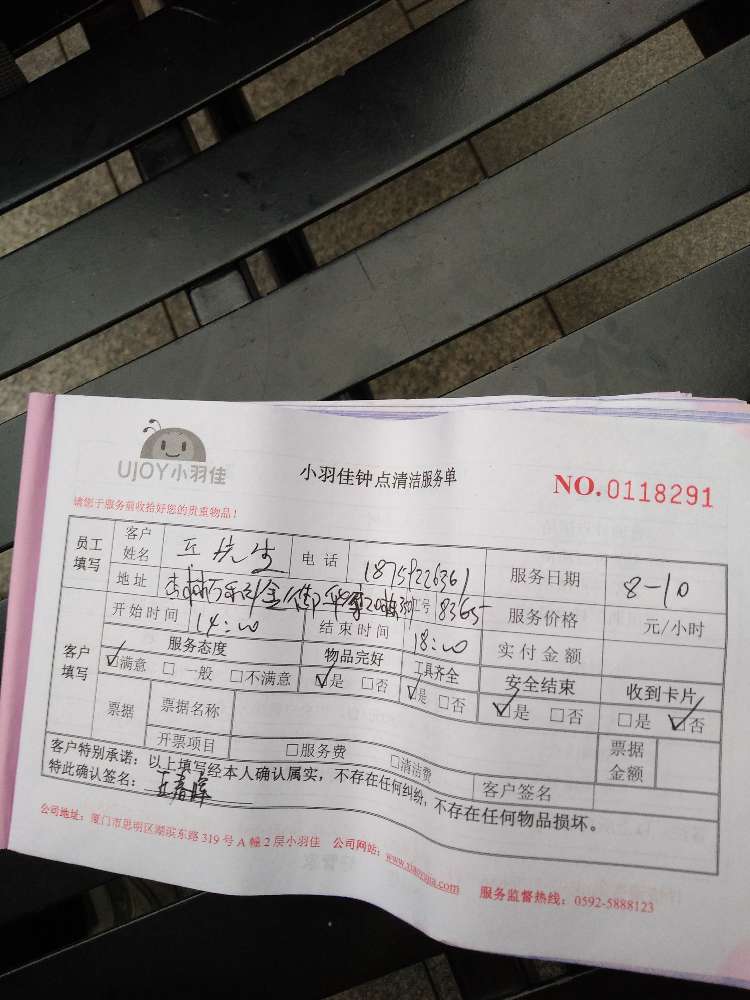 UJOY小羽佳
小羽佳钟点清洁服务单
NO.0118291
请您于服务前收拾好您的贵重物品！
员工填写 客户姓名 丘先生 电话 服务日期 8-10
地址 工号 8365 服务价格 元/小时
客户填写 开始时间 14:00 结束时间 18:00 实付金额
服务态度 物品完好 工具齐全 安全结束 收到卡片
☑满意 □一般 □不满意 ☑是 □否 ☑是 □否 ☑是 □否 □是 ☑否
票据 票据名称 票据金额
开票项目 □服务费 □清洁费 客户签名
客户特别承诺：以上填写经本人确认属实，不存在任何纠纷，不存在任何物品损坏。
特此确认签名：丘春晖
公司地址：厦门市思明区湖滨东路319号A幢2层小羽佳 公司网站： 服务监督热线：0592-5888123